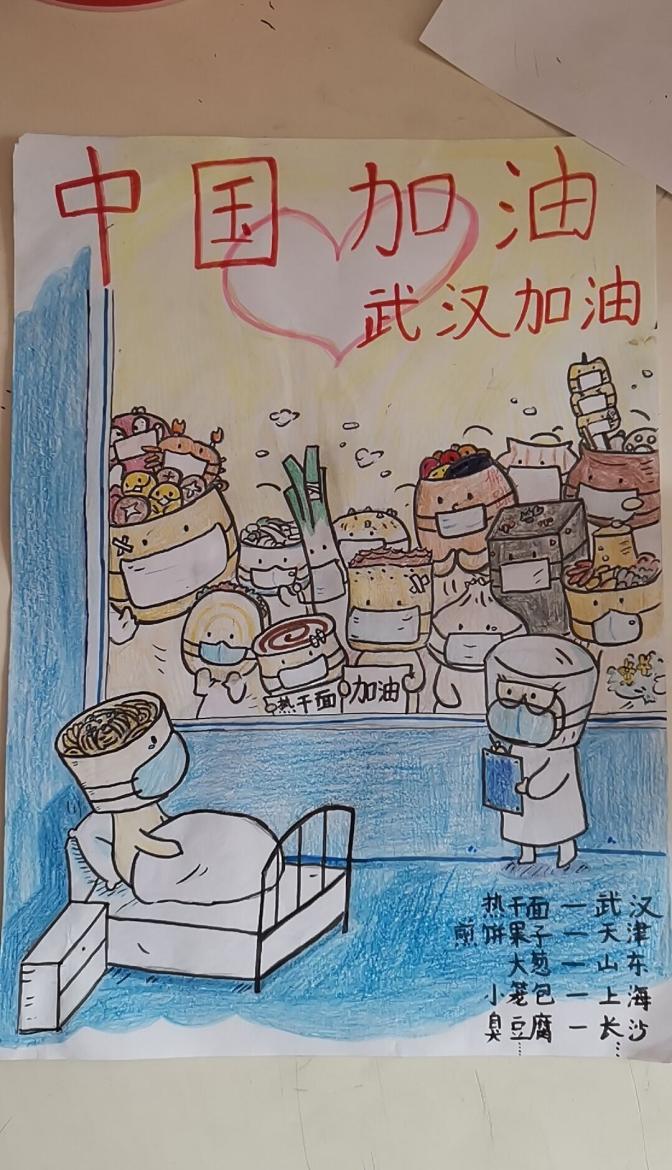 中国加油
武汉加油
热干面 加油
热干面一武汉
煎饼果子一天津
大葱一山东
小笼包一上海
臭豆腐一长沙